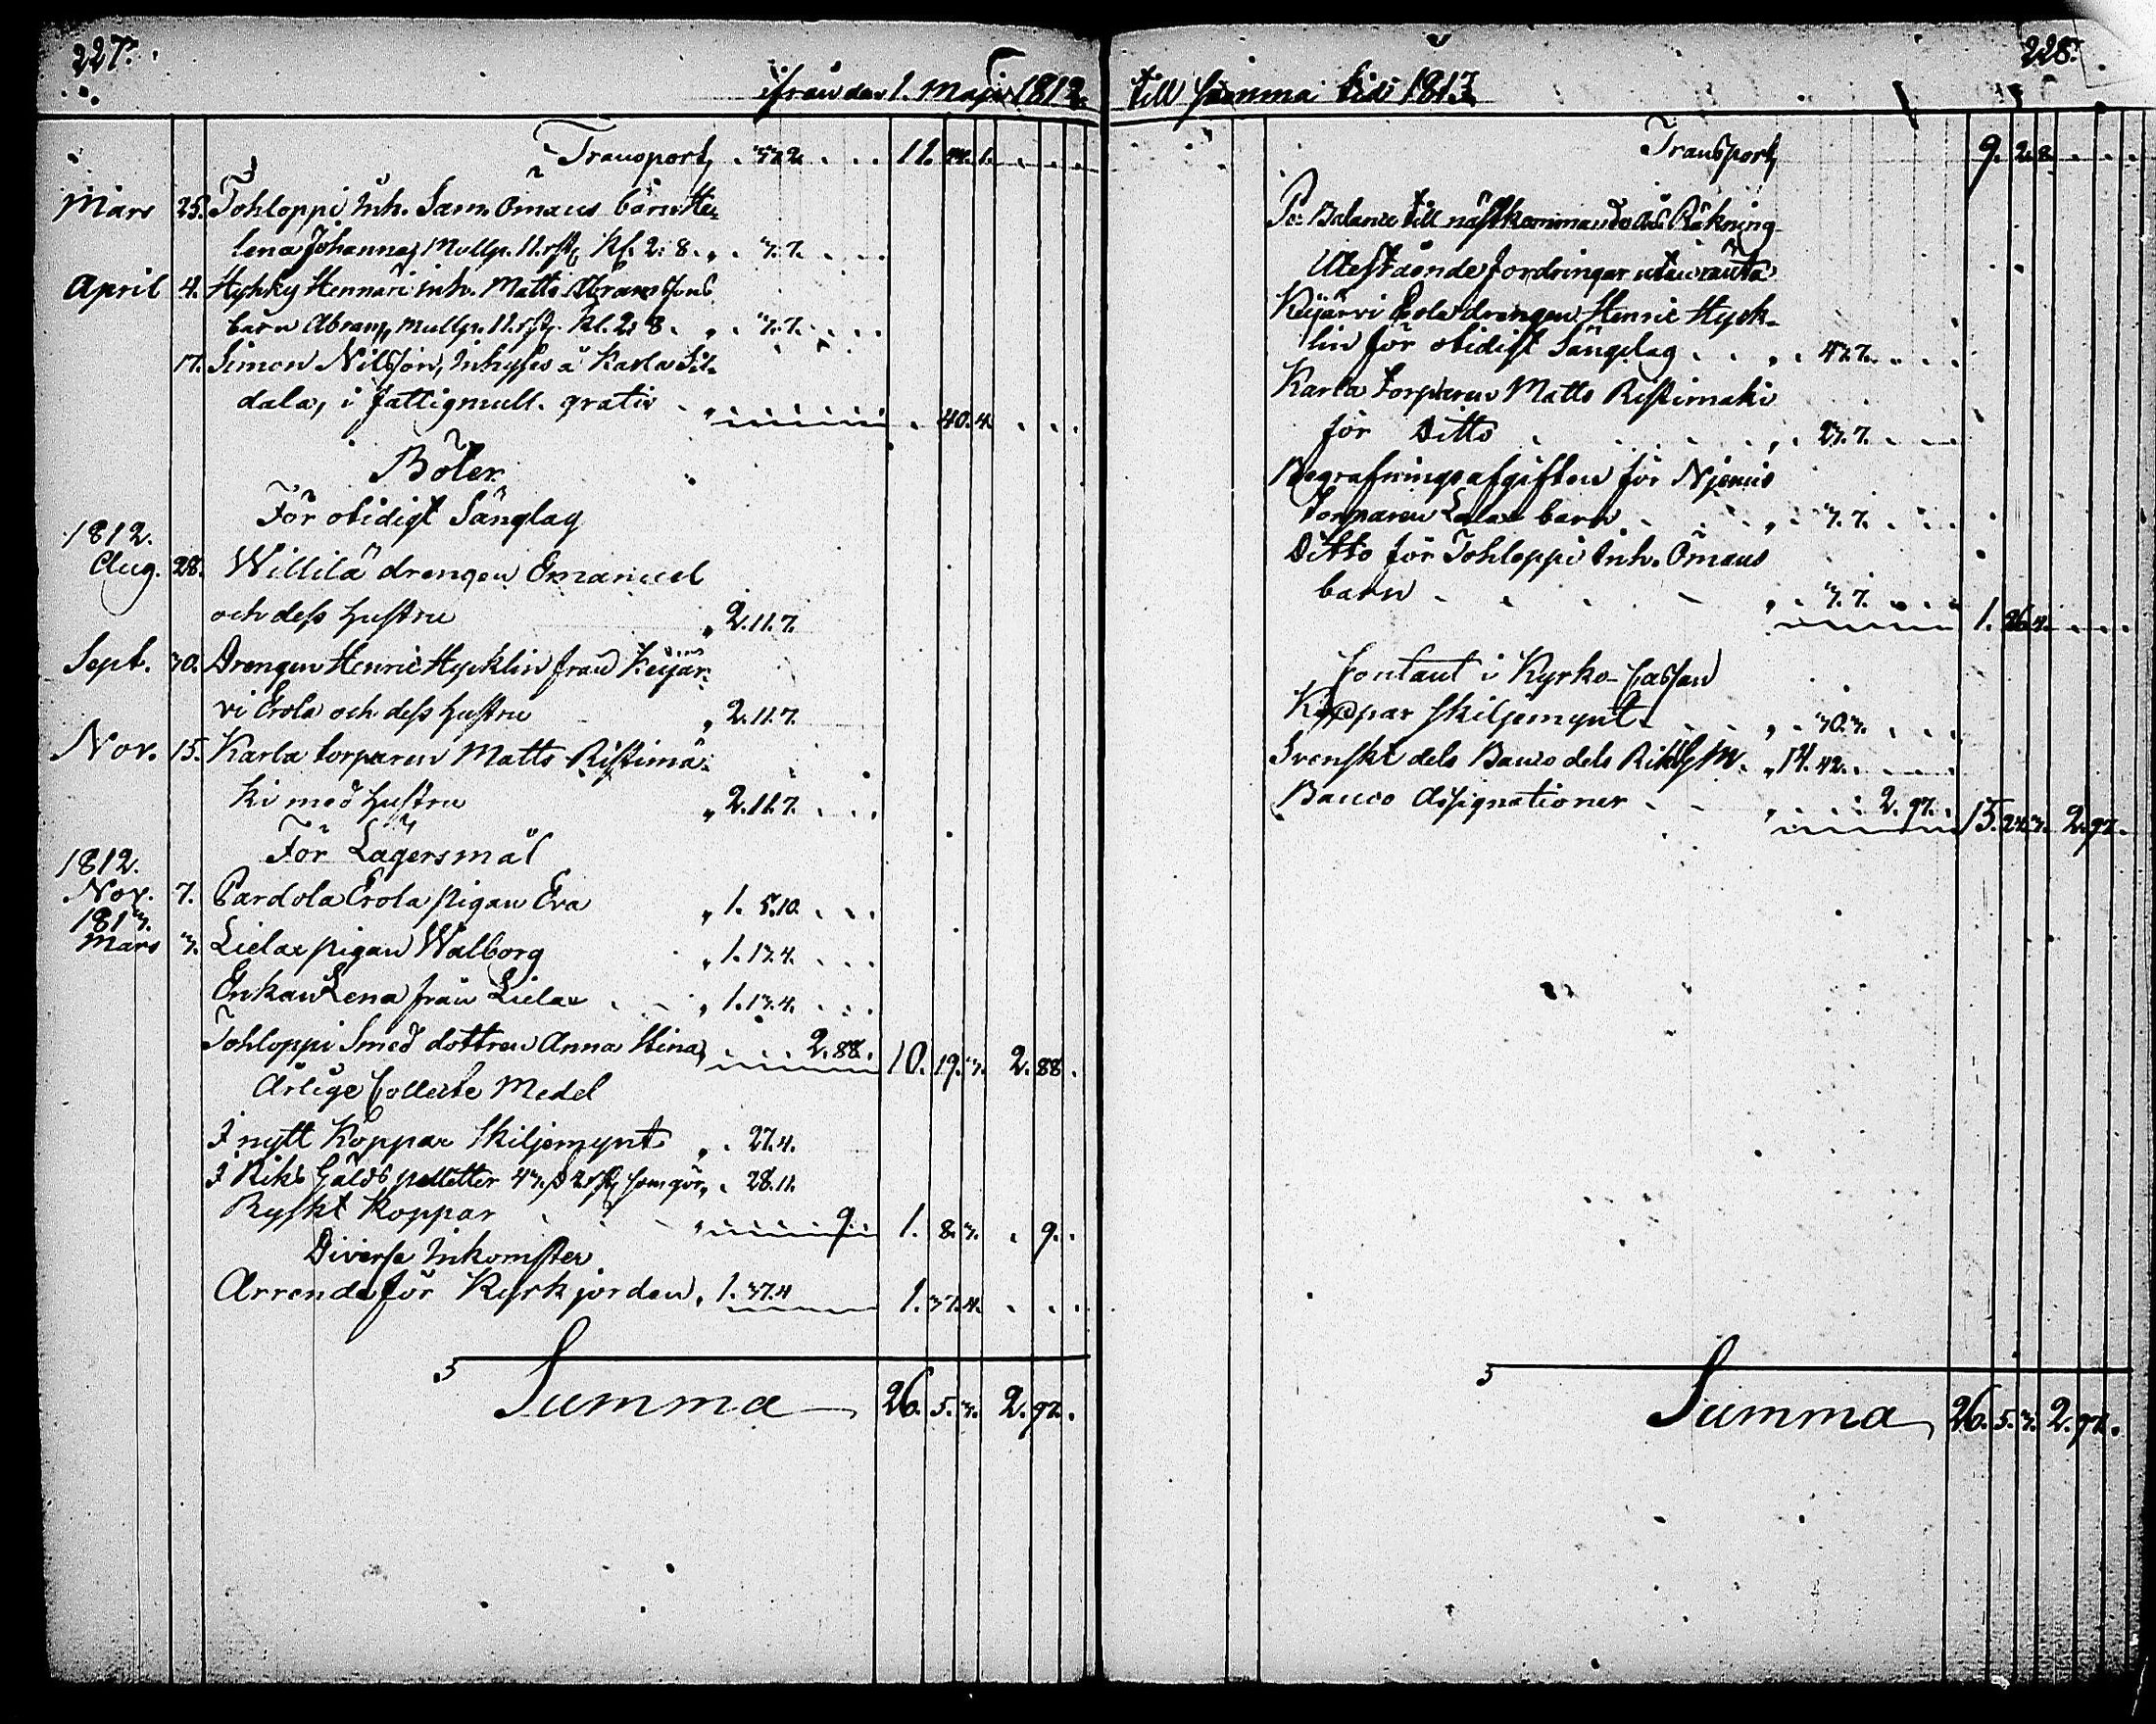 227.
ifrån den 1. Maji 1812.
Transport, . 33.2. . . . 11. 44. 1. . . .
Mars 25. Tohloppi Inh. Sam. Ömans barn He-
lena Johanna, Mullp. 11. rst. Kl. 2: 8. „ . 3. 7. . . .
April 4. Hyhky Hennari inh. Matts Abramssons
barn Abram, Mullp. 11. rst. Kl. 2: 8. „ . 3. 7. . . .
17. Simon Nilsson, Inhyses å Karla Sil-
dala, i fattigmull. gratis . „ . . . . . . 40. 4. . . .
Böter.
För otidigt Sänglag
1812.
Aug. 28. Willilä drengen Emanuel
och dess hustru „ 2. 11. 7.
Sept. 30. Drengen Henric Hycklin från Keijär-
vi Erola och dess hustru „ 2. 11. 7.
Nov. 15. Karla torparen Matts Ristimä-
ki med hustru „ 2. 11. 7. . . .
För Lägersmål
1812.
Nov. 7. Pardola Erola pigan Eva „ 1. 5. 10. . . .
1813.
Mars 3. Lielax pigan Walborg „ 1. 13. 4. . . .
Enkan Lena från Lielax . . „ 1. 13. 4. . . .
Tohloppi Smed dottren Anna Stina, . . . 2. 88. 10. 19. 3. 2. 88.
Årlige Collecte Medel
I nytt Koppar Skiljemynt „ . 27. 4.
I Riks Gälds polletter 43. ß 2. rst. som gör, . 28. 11.
Ryskt Koppar . . . „ . . . . 9. 1. 8. 3. . 9. .
Diverse Inkomster
Arrende för Kyrkjorden, 1. 37. 4 1. 37. 4. . . .
Summa 26. 5. 3. 2. 97. .
228.
till samma tid 1813.
Transport, 9. 2. 8. . . .
Pr Balance till nästkommande års Räkning
Utestående fordringar utan ränta
Keijärvi Erola drengen Henric Hyck-
lin för otidigt Sänglag . . „ . 43. 7. . . .
Karla torparen Matts Ristimäki
för Ditto . . . . . . „ . 23. 7. . . .
Begrafningsafgiften för Njemis
torparen barn . . . „ . 3. 7. . . .
Ditto för Tohloppi Inh. Ömans
barn . . . . „ . 3. 7. . . . 1. 26. 4. . . .
Contant i Kyrko-Cassan
Koppar skiljemynt . . . „ . 30. 3. . . .
Svenskt dels Banco dels Riksg. M. „ 14. 42. . . .
Banco Assignationer . . „ . . . 2. 97. . 15. 24. 3. 2. 97. .
Summa 26. 5. 3. 2. 97. .